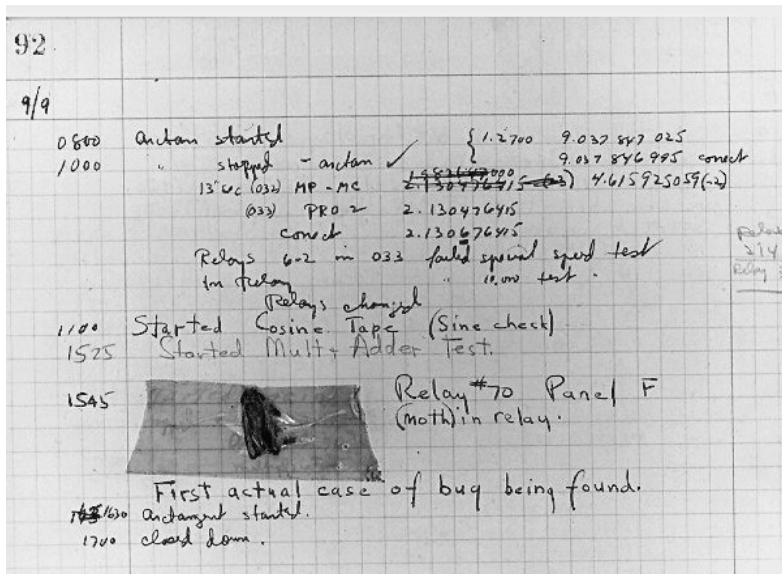 92
9/9
0800 arctan started { 1.2700 9.037 847 025
1000 " stopped - arctan ✓ { 9.037 846 995 conect
13"uc (032) MP - MC 2.130476415 (-3) 4.615925059(-2)
(033) PRO 2 2.130476415
conect 2.130676415
Relays 6-2 in 033 failed special speed test
In Relay " 10.000 test .
Relays changed
1100 Started Cosine Tape (Sine check)
1525 Started Mult + Adder Test.
1545 Relay #70 Panel F
(Moth) in relay.
First actual case of bug being found.
1630 arctangent started.
1700 closed down.
Relay